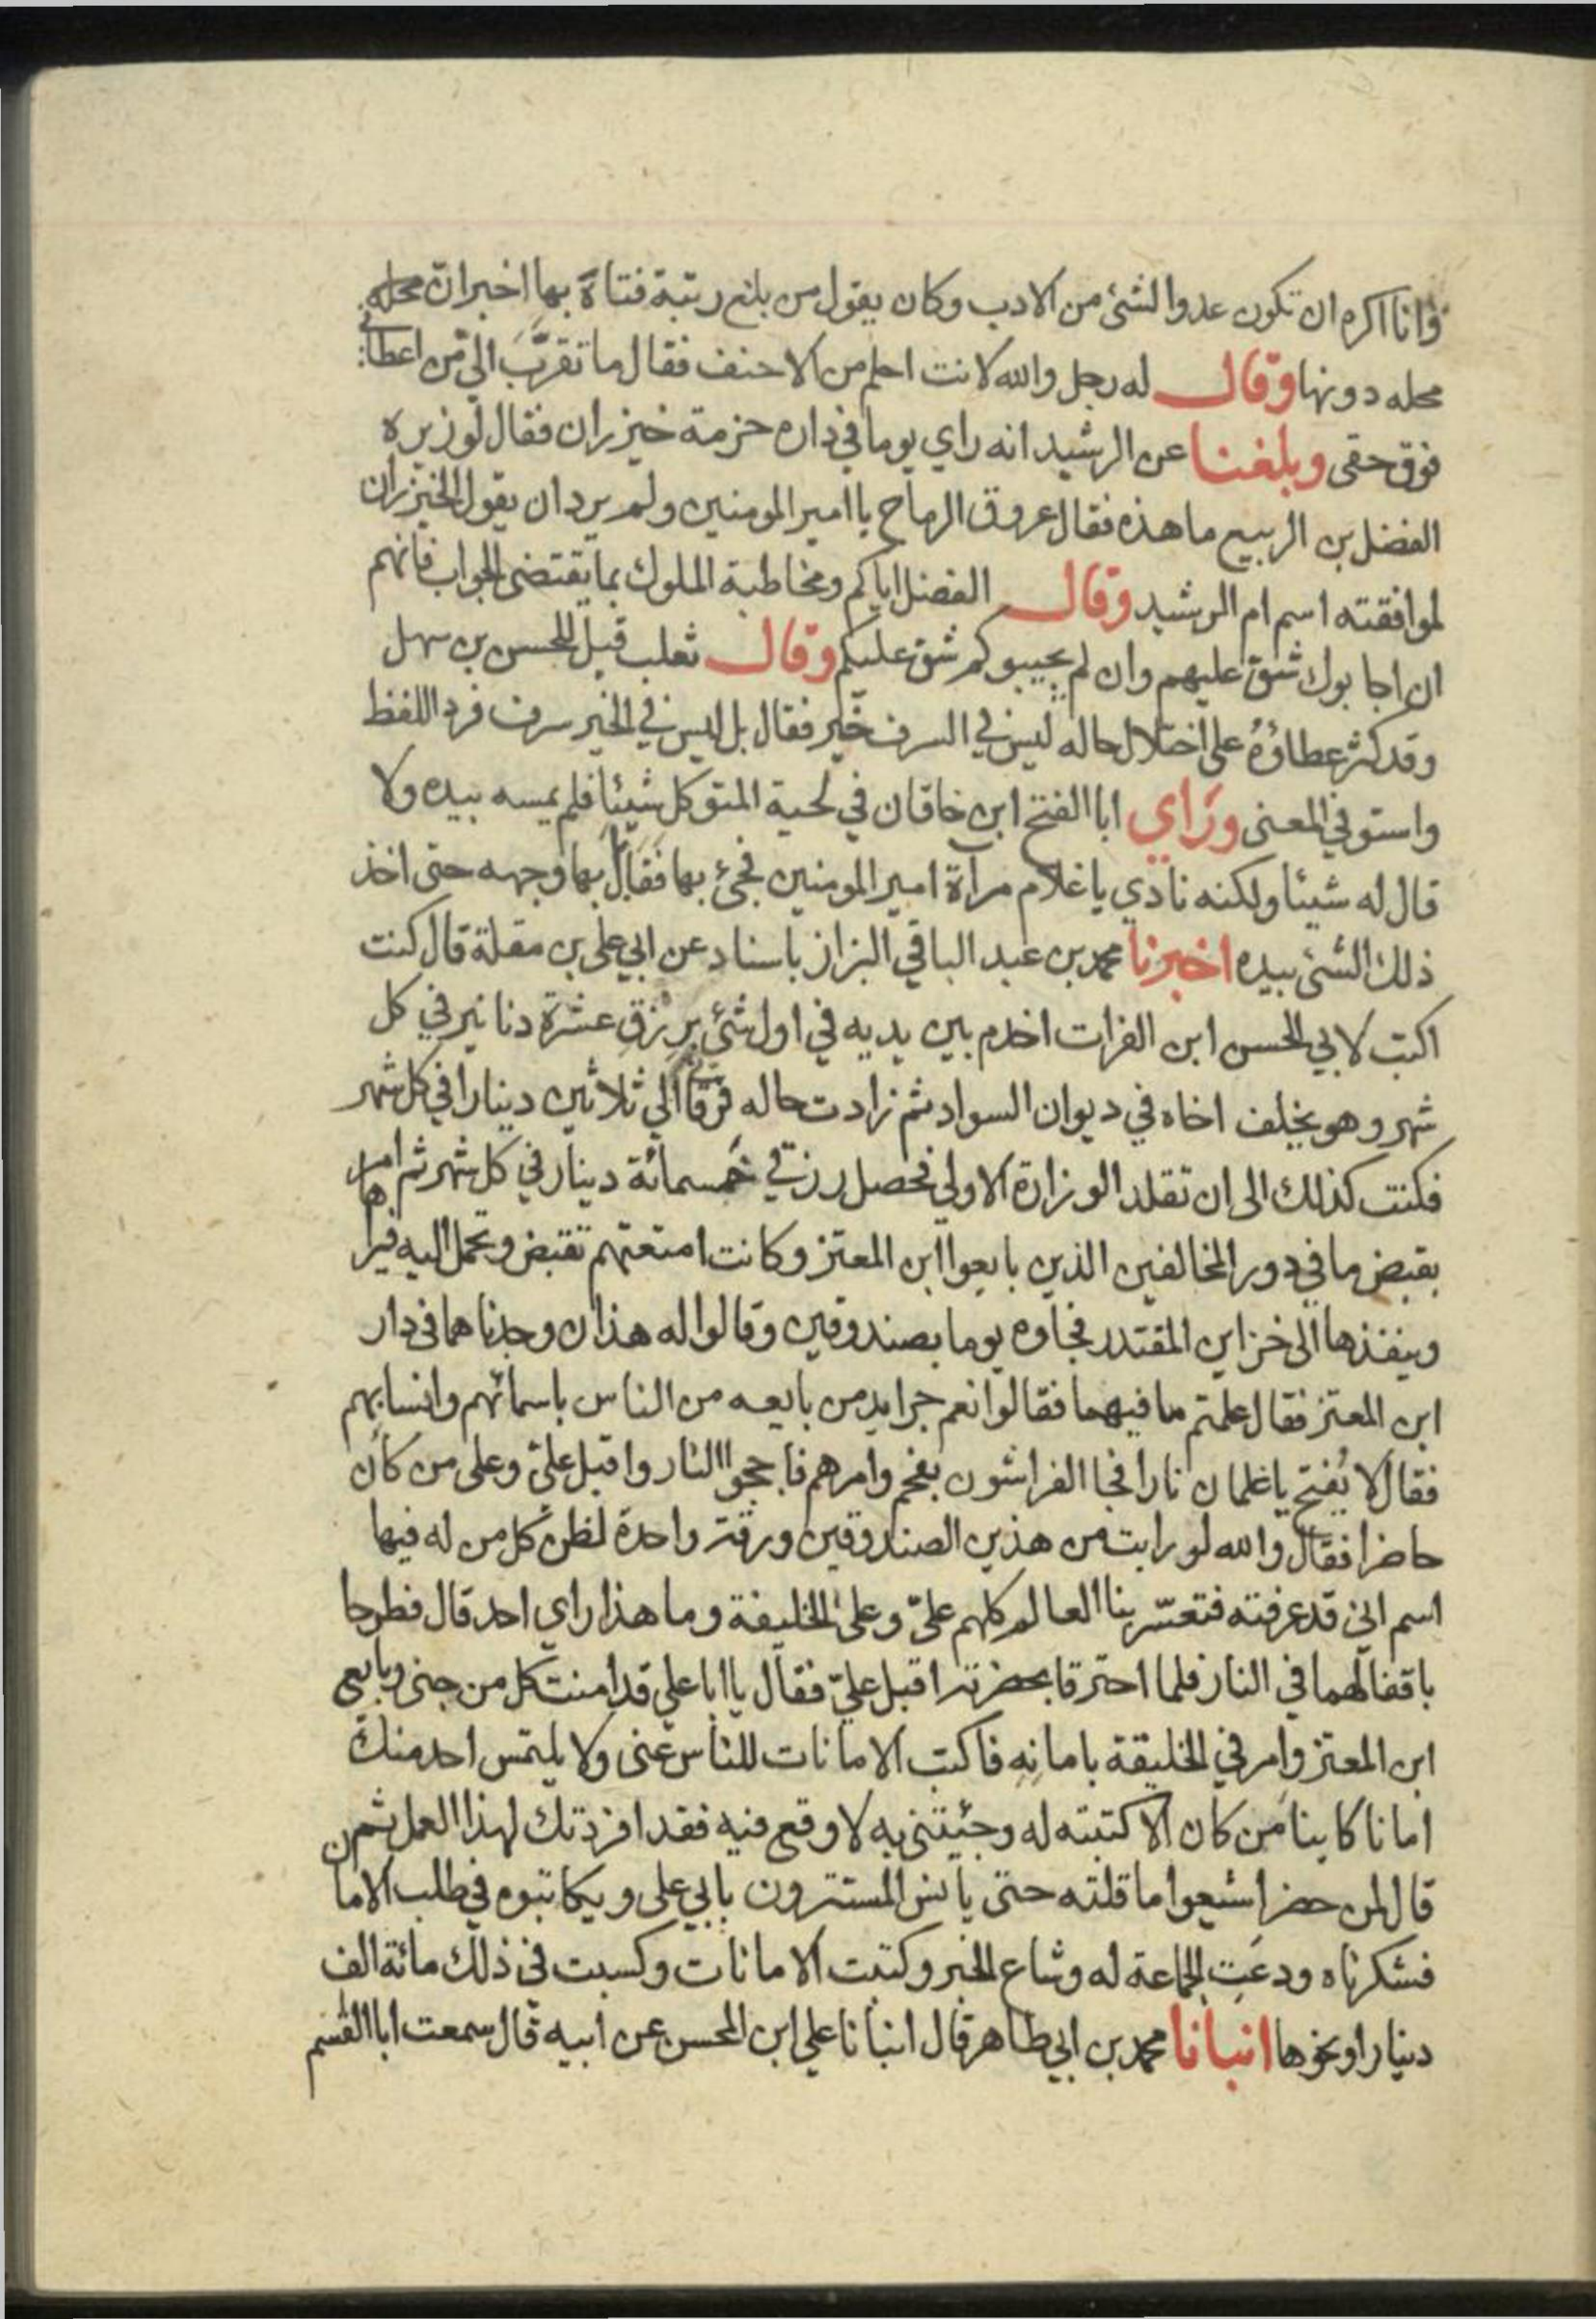 وانا اكره ان تكون عدوا لشئ من الادب وكان يقول من بلغ رتبة فتاه بها اخبر ان محله
محله دونها وقال له رجل والله لانت احلم من الاحنف فقال ما تقرّبَ اليّ من اعطاني
فوق حقي وبلغنا عن الرشيد انه راي يوما في داره حزمة خيزران فقال لوزيره
الفضل بن الربيع ما هذه فقال عروق الرماح يا امير المومنين ولم يرد ان يقول الخيزران
لموافقته اسم ام الرشيد وقال الفضل اياكم ومخاطبة الملوك بما يقتضي الجواب فانهم
ان اجابوك شق عليهم وان لم يجيبوكم شق عليكم وقال ثعلب قيل للحسن بن سهل
وقد كثر عطاؤهُ على اختلال حاله ليس في السرف خير فقال بل ليس في الخير سرف فرد اللفظ
واستوفي المعنى ورَاي ابا الفتح ابن خاقان في لحية المتوكل شيئا فلم يمسه بيده ولا
قال له شيئا ولكنه نادي يا غلام مرآة امير المومنين فجئ بها فقابل بها وجهه حتى اخذ
ذلك الشئ بيده اخبرنا محمد بن عبد الباقي البزاز باسناد عن ابي علي بن مقلة قال كنت
اكتب لابي الحسن ابن الفرات اخدم بين يديه في اول شئ برزقِ عشرة دنانير في كل
شهر وهو يخلف اخاه في ديوان السواد ثم زادت حاله فرقاني الي ثلاثين دينارا في كل شهر
فكنت كذلك الى ان تقلد الوزارة الاولي فحصل رزقي خمسمائة دينار في كل شهر ثم امر
بقبض ما في دور المخالفين الذين بايعوا ابن المعتز وكانت امتعتهم تقبض وتحمل اليه فيراها
وينفذها الى خزاين المقتدر فجاوه يوما بصندوقين وقالوا له هذان وجدناهما في دار
ابن المعتز فقال علمتم ما فيهما فقالوا نعم جرايد من بايعه من الناس باسمائهم وانسابهم
فقال لا يُفتح يا غلمان نارا فجا الفراشون بفحم وامرهم فاججوا النار واقبل عليّ وعلى من كان
حاضرا فقال والله لو رايت من هذين الصندوقين ورقة واحدة لظن كل من له فيها
اسم اني قد عرفته فتعسّر بنا العالم كلهم عليّ وعلى الخليفة وما هذا راي احد قال فطرحا
باقفالهما في النار فلما احترقا بحضرته اقبل عليّ فقال يا ابا علي قد امنت كل من جنى وبايع
ابن المعتز وامرني الخليفة بامانهِ فاكتب الامانات للناس عني ولا يلتمس احد منك
امانا كاينا من كان الا كتبته له وجئيتني به لاوقع فيه فقد افردتك لهذا العمل ثم
قال لمن حضر اشيعوا ما قلته حتى يانس المستترون بابي علي ويكاتبوه في طلب الامان
فشكرناه ودعت الجماعة له وشاع الخبر وكتبت الامانات وكسبت في ذلك مائة الف
دينار او نحوها انبانا محمد بن ابي طاهر قال انبانا علي ابن المحسن عن ابيه قال سمعت ابا القسم